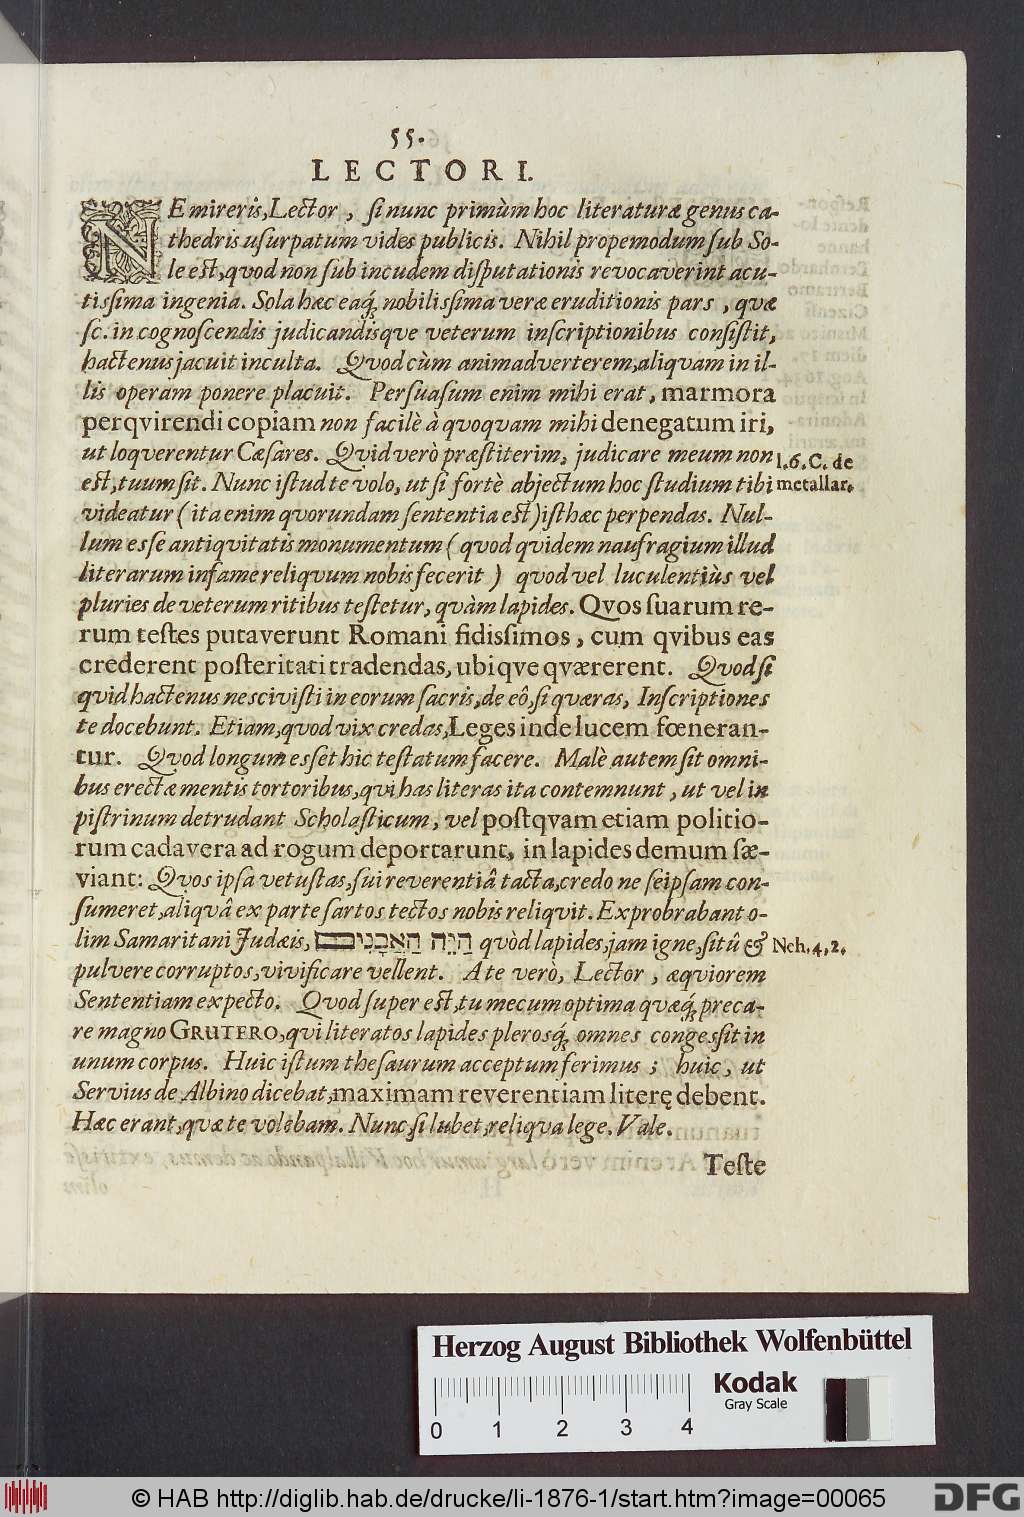 55.
LECTORI.
NE mireris, Lector, si nunc primùm hoc literaturæ genus ca-
thedris usurpatum vides publicis. Nihil propemodum sub So-
le est, quod non sub incudem disputationis revocaverint acu-
tissima ingenia. Sola hæc eaq́; nobilissima veræ eruditionis pars, quæ
sc. in cognoscendis judicandisque veterum inscriptionibus consistit,
hactenus jacuit inculta. Qvod cùm animadverterem, aliqvam in il-
lis operam ponere placuit. Persuasum enim mihi erat, marmora
perqvirendi copiam non facilè à qvoqvam mihi denegatum iri,
ut loqverentur Cæsares. Qvid verò præstiterim, judicare meum non
est, tuum sit. Nunc istud te volo, ut si fortè abjectum hoc studium tibi
videatur (ita enim qvorundam sententia est) isthæc perpendas. Nul-
lum esse antiqvitatis monumentum (qvod qvidem naufragium illud
literarum infame reliqvum nobis fecerit) qvod vel luculentiùs vel
pluries de veterum ritibus testetur, qvàm lapides. Qvos suarum re-
rum testes putaverunt Romani fidissimos, cum qvibus eas
crederent posteritati tradendas, ubiqve qværerent. Qvod si
qvid hactenus nescivisti in eorum sacris, de eô, si qværas, Inscriptiones
te docebunt. Etiam, qvod vix credas, Leges inde lucem fœneran-
tur. Qvod longum esset hic testatum facere. Malè autem sit omni-
bus erectæ mentis tortoribus, qvi has literas ita contemnunt, ut vel in
pistrinum detrudant Scholasticum, vel postqvam etiam politio-
rum cadavera ad rogum deportarunt, in lapides demum sæ-
viant: Qvos ipsa vetustas, sui reverentiâ tacta, credo ne seipsam con-
sumeret, aliqvâ ex parte sartos tectos nobis reliqvit. Exprobrabant o-
lim Samaritani Judæis, הַיֵּה הָאֲבָנִים qvòd lapides, jam igne, sitû &
pulvere corruptos, vivificare vellent. A te verò, Lector, æqviorem
Sententiam expecto. Qvod super est, tu mecum optima qvæq́; preca-
re magno GRUTERO, qvi literatos lapides plerosq́; omnes congessit in
unum corpus. Huic istum thesaurum acceptum ferimus; huic, ut
Servius de Albino dicebat, maximam reverentiam literę debent.
Hæc erant, qvæ te volebam. Nunc, si lubet, reliqva lege. Vale.
Teste
l. 6. C. de
metallar.
Neh. 4, 2.
Herzog August Bibliothek Wolfenbüttel
Kodak
Gray Scale
0 1 2 3 4
© HAB http://diglib.hab.de/drucke/li-1876-1/start.htm?image=00065
DFG